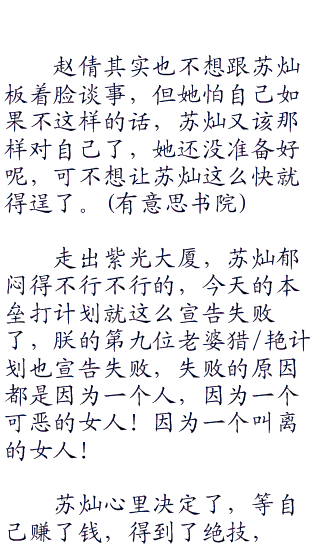 赵倩其实也不想跟苏灿
板着脸谈事，但她怕自己如
果不这样的话，苏灿又该那
样对自己了，她还没准备好
呢，可不想让苏灿这么快就
得逞了。(有意思书院)
走出紫光大厦，苏灿郁
闷得不行不行的，今天的本
垒打计划就这么宣告失败
了，朕的第九位老婆猎/艳计
划也宣告失败，失败的原因
都是因为一个人，因为一个
可恶的女人！因为一个叫离
的女人！
苏灿心里决定了，等自
己赚了钱，得到了绝技，